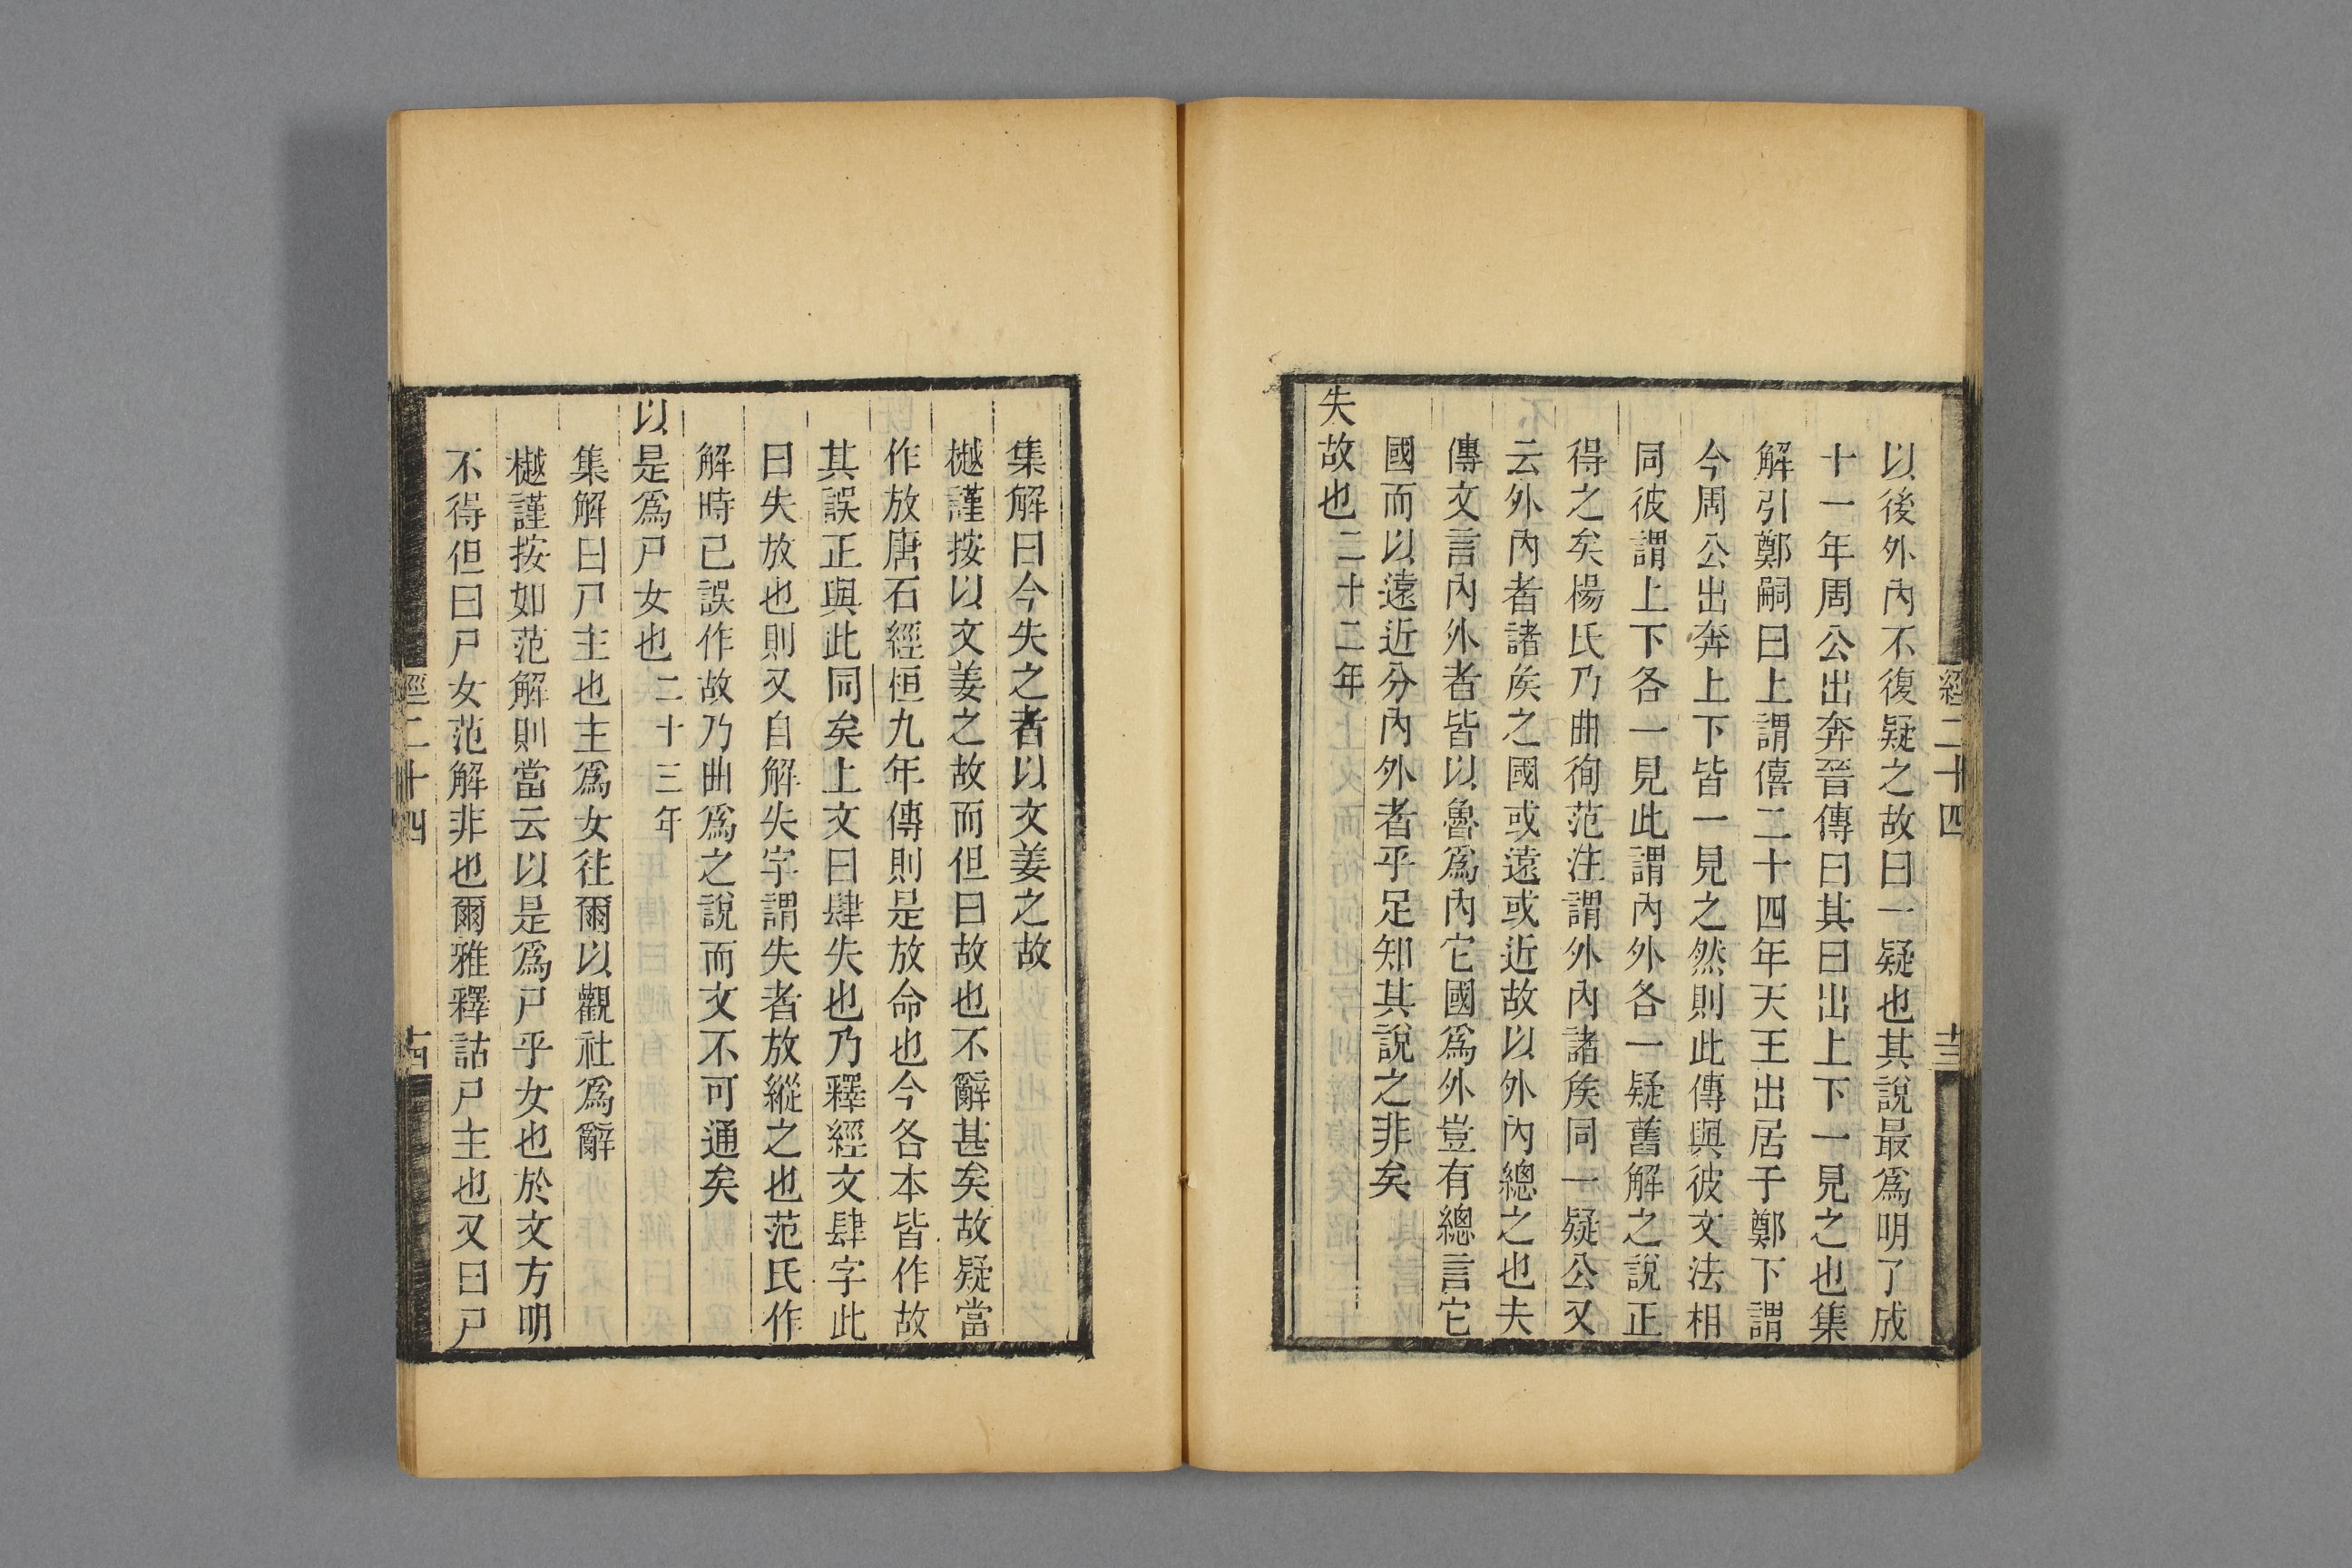 經二十四
十三
以後外內不復疑之故曰一疑也其說最爲明了成
十一年周公出奔晉傳曰其曰出上下一見之也集
解引鄭嗣曰上謂僖二十四年天王出居于鄭下謂
今周公出奔上下皆一見之然則此傳與彼文法相
同彼謂上下各一見此謂內外各一疑舊解之說正
得之矣楊氏乃曲徇范注謂外內諸矦同一疑公又
云外內者諸矦之國或遠或近故以外內總之也夫
傳文言內外者皆以魯爲內它國爲外豈有總言它
國而以遠近分內外者乎足知其說之非矣
失故也二十二年
集解曰今失之者以文姜之故
樾謹按以文姜之故而但曰故也不辭甚矣故疑當
作放唐石經桓九年傳則是放命也今各本皆作故
其誤正與此同矣上文曰肆失也乃釋經文肆字此
曰失放也則又自解失字謂失者放縱之也范氏作
解時已誤作故乃曲爲之說而文不可通矣
以是爲尸女也二十三年
集解曰尸主也主爲女往爾以觀社爲辭
樾謹按如范解則當云以是爲尸乎女也於文方明
不得但曰尸女范解非也爾雅釋詁尸主也又曰尸
經二十四
十四